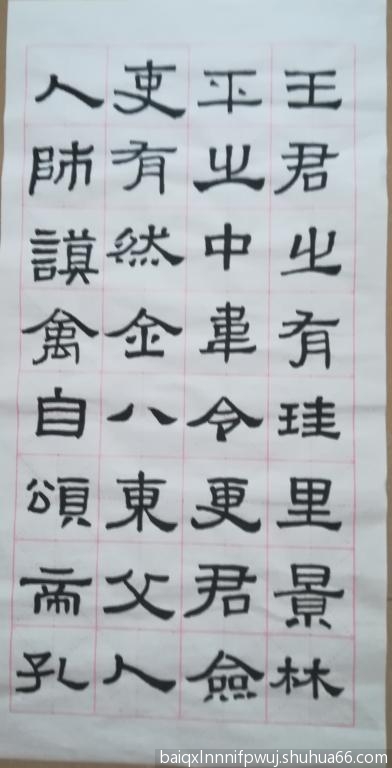 王君之有珪里景林
平之中令更君僉
吏有然金八東父人
人師謨禽自頌孔
baiqxlnnnifpwuj.shuhua66.com